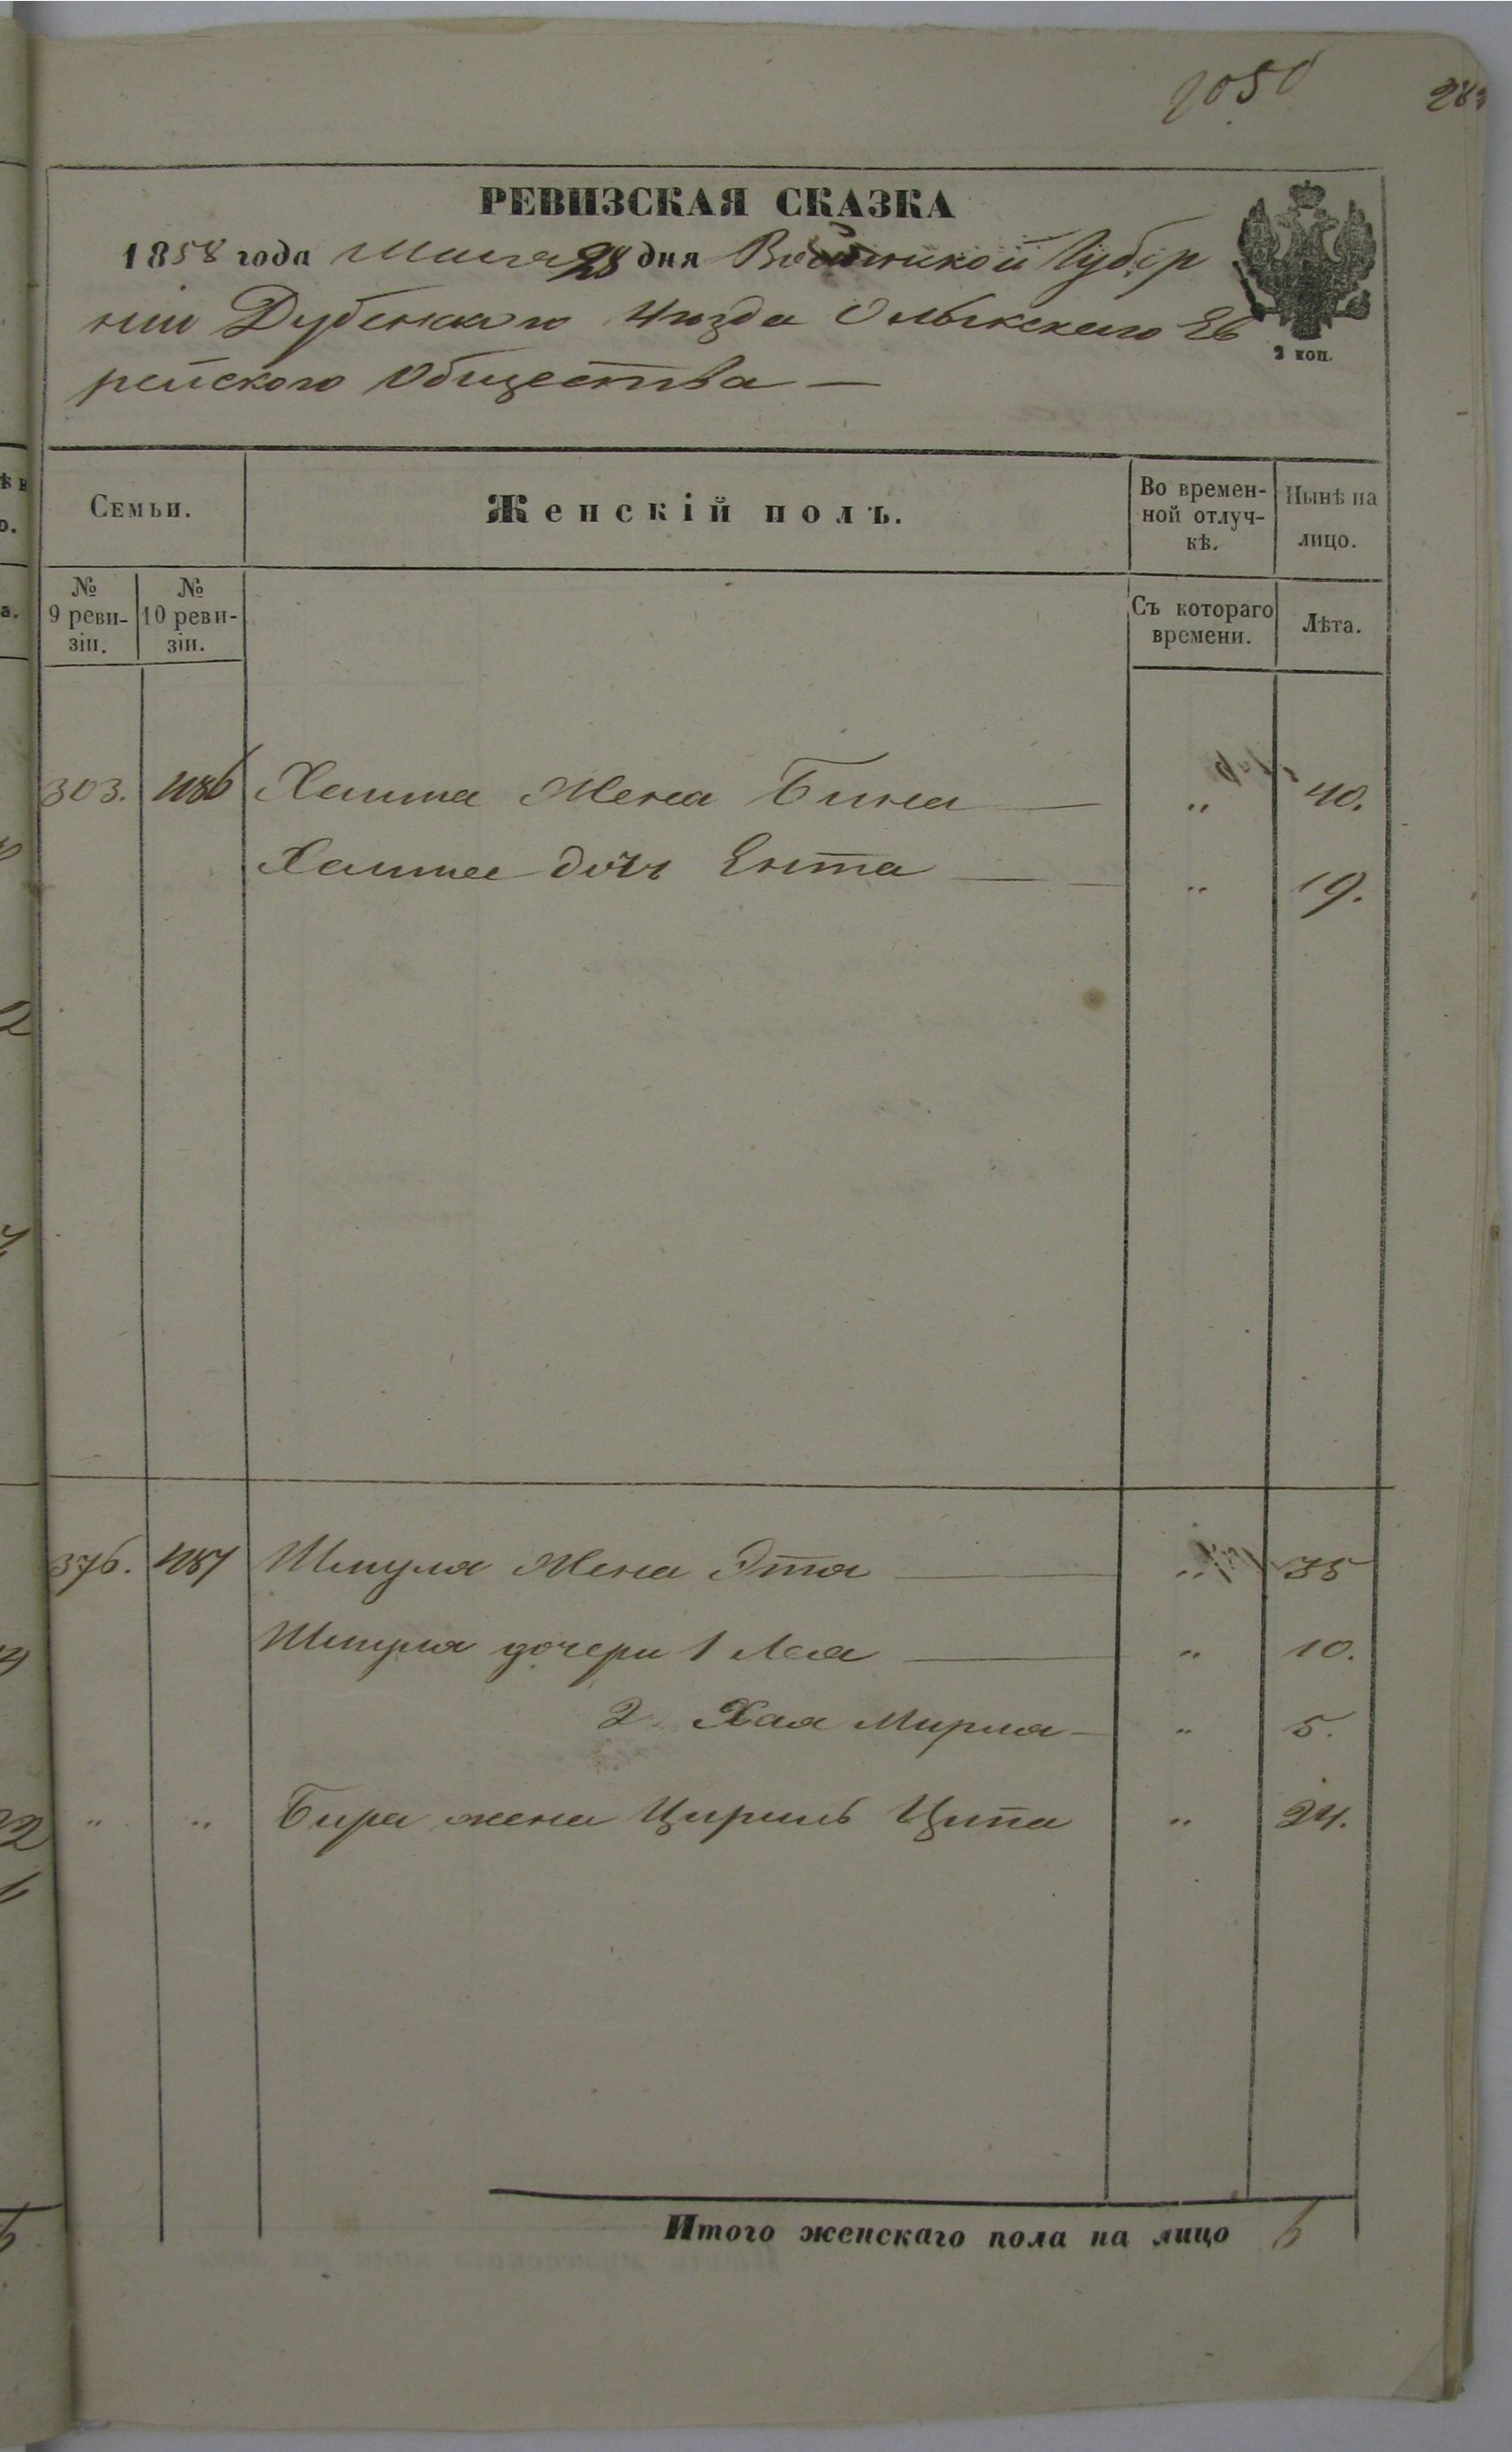 1050
283
РЕВИЗСКАЯ СКАЗКА
1858 года Маия 28 дня Волынской Губер
нии Дубенскаго Уезда Олыкскаго Ев
рейского Общества —
2 коп.
Семьи.
Женскій полъ.
Во времен-
ной отлуч-
кѣ.
Нынѣ на
лицо.
№
9 реви-
зіи.
№
10 реви-
зіи.
Съ котораго
времени.
Лѣта.
303. 1186 Хаима Жена Бина — „ 40.
Хаима дочь Ента — „ 19.
376. 1187 Шмуля Жена Эта — „ 35
Шмуля дочери 1 Лея — „ 10.
2 Хая Мирля — „ 5.
„ „ Бера жена Цириль Ципа „ 24.
Итого женскаго пола на лицо 6